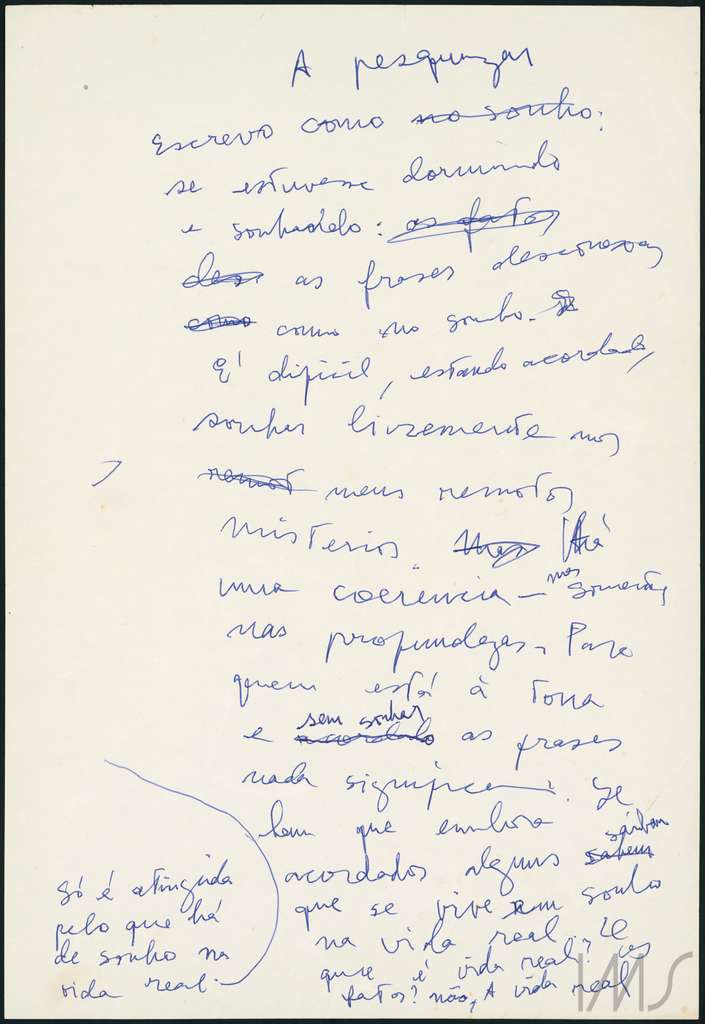 A pesquizar
Escrevo como no sonho:
se estivesse dormindo
e sonhadolo: os fatos
des as frases desconexas
como como no sonho. Se
É dificil, estando acordado,
sonhar livremente nos
remot meus remotos
misterios. Mas Há
uma coerencia – mas somente
nas profundezas. Para
quem está à tona
e acordado sem sonhar as frases
nada significam. Se
bem que embora
acordados alguns sabem saibam
que se vive em sonho
na vida real. E o
que é vida real? os
fatos? não, A vida real
só é atingida
pelo que há
de sonho na
vida real.
IMS